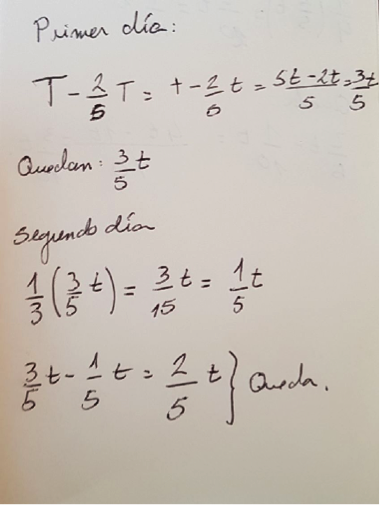 Primer día:
T - 2/5 T = t - 2/5 t = 5t-2t/5 = 3t/5
Quedan: 3/5 t
Segundo día
1/3 (3/5 t) = 3/15 t = 1/5 t
3/5 t - 1/5 t = 2/5 t } Queda.